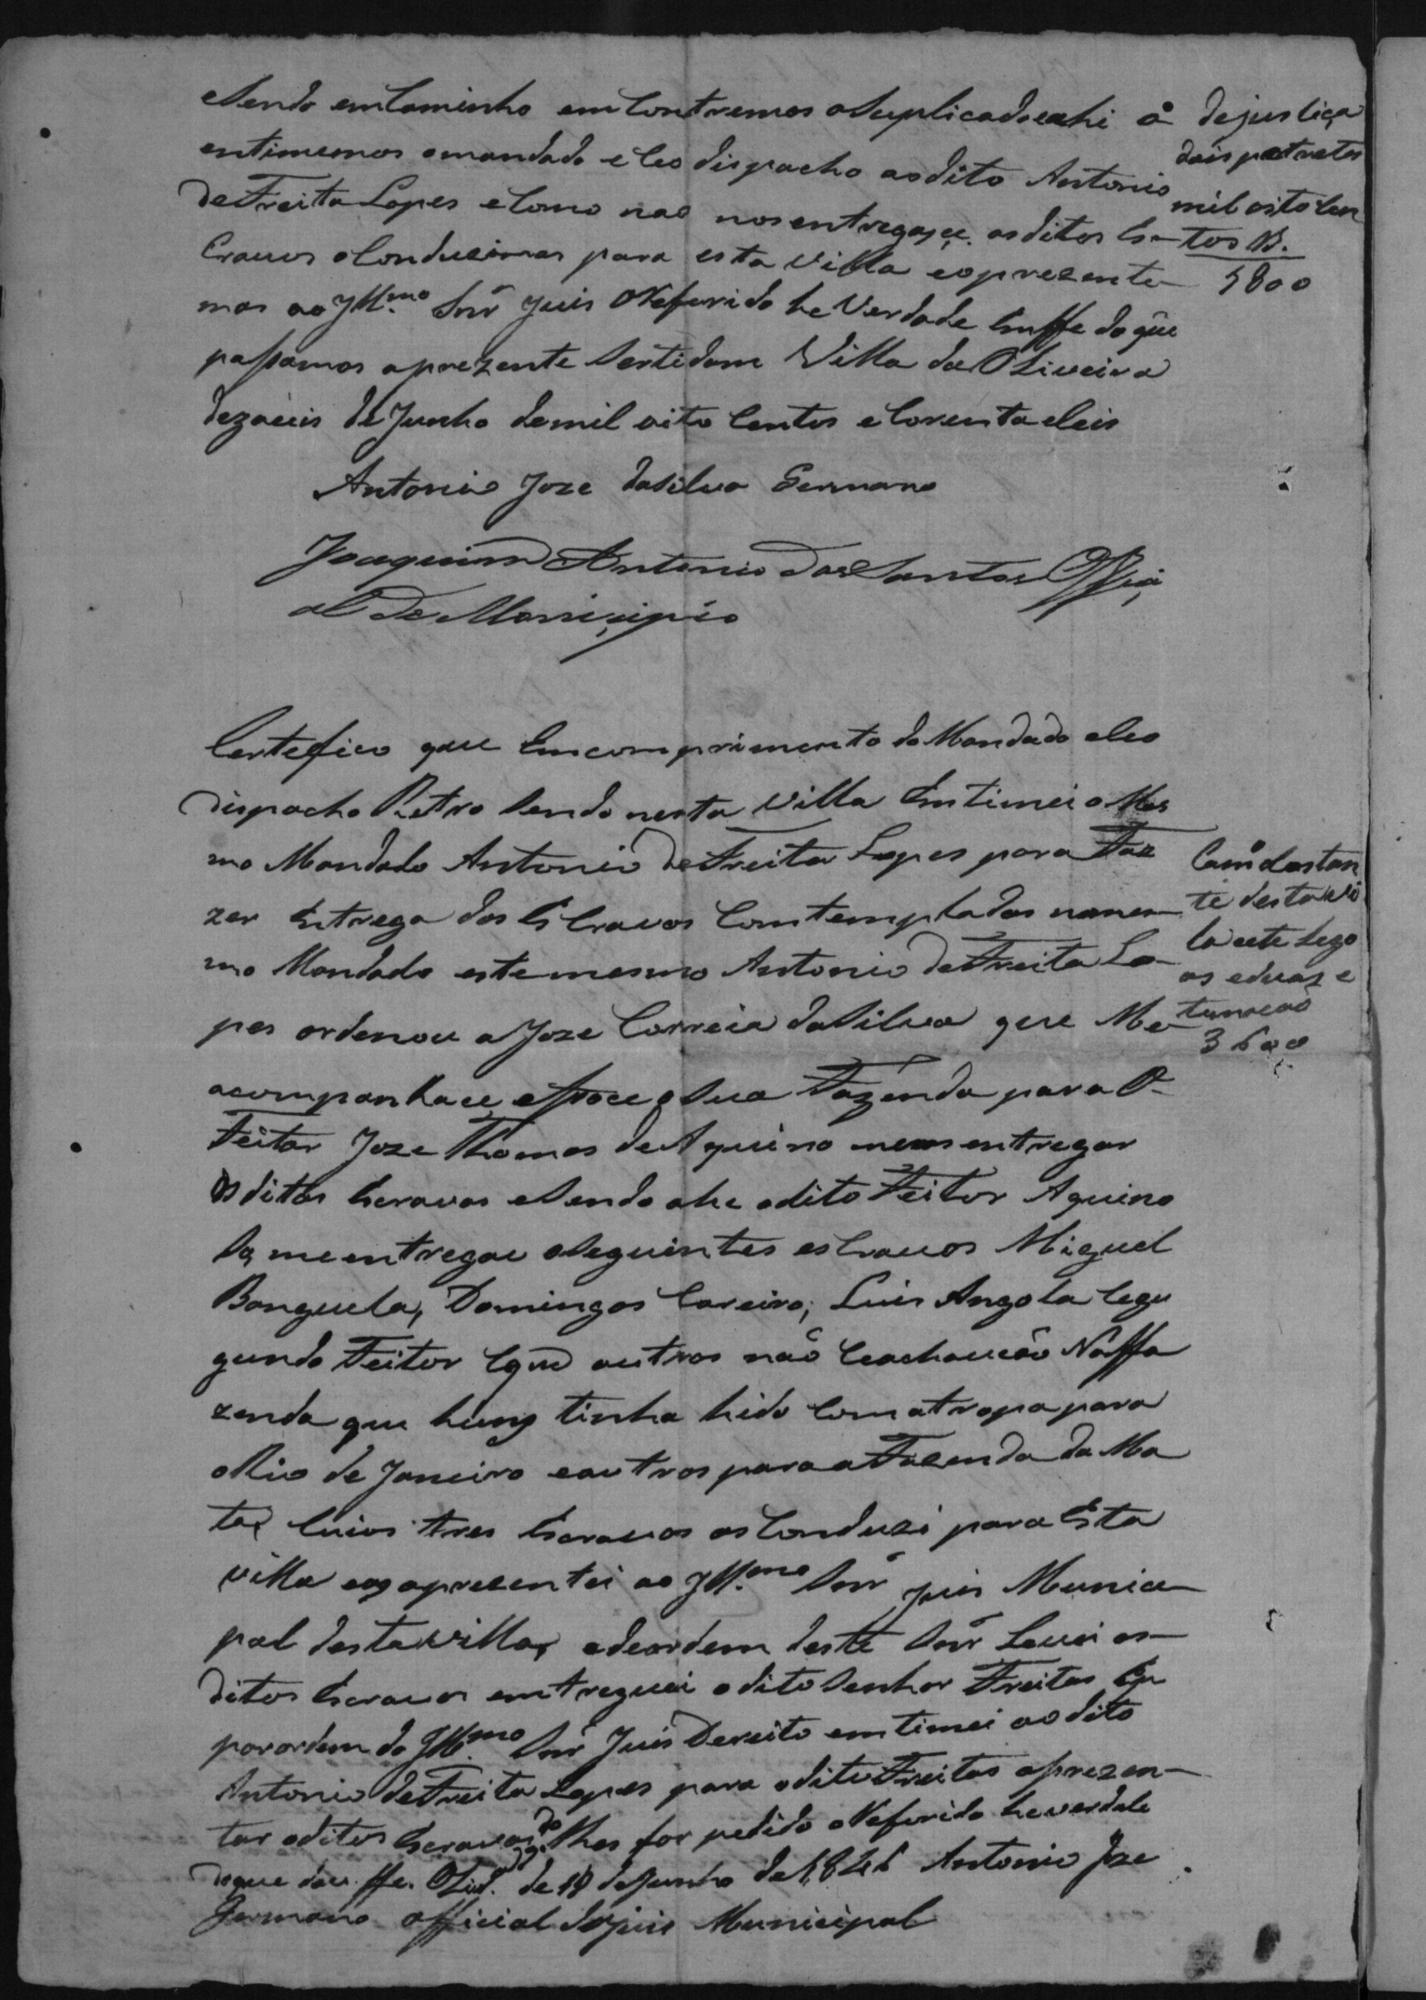 eSendo em Caminho em Contremos oSuplicado eahi o
entimemos omandado e Seo dispacho aodito Antonio
deFreita Lopes eComo nao nos entregaçe os ditos Es-
Cravos oConduzimos para esta Villa eoprezente-
mos ao Illmo Snr Juis ORefirido he Verdade Emffe do que
passamos aprezente Sertidam Villa da Oliveira
dezaceis de Junho demil oito Centos e Corenta eSeis
Antonio Joze daSilva Germano
Joaquim Antonio dos Santos Offici
al de Monicipio
dejustiça
dois
mil oito Cen
tos R.
Certefico que Emcomprimento do Mandado eSeo
dispacho Retro Sendo nesta Villa Entimei o Mes
mo Mandado Antonio deFreita Lopes para Faz
zer Entrega dos EsCravos Comtemplados nomes
mo Mandado este mesmo Antonio deFreita Lo-
pes ordenou a Joze Correia daSilva que Me
acompanhace efoce aSua Fazenda para O
Feitor Joze Thomas de Aquino me entregar
Os ditos Escravos eSendo ahe odito Feitor Aquino
So me entregou oSeguintes esCravos Miguel
Banguela, Domingos Careiro, Luis Angola Segu
gundo Feitor Que outros não Ceachavão Naffa
zenda que huns tinha hido Comatropa para
oRio de Janeiro eoutros para aFazenda da Ma
ta, Cuios tres Escravos os Conduzi para Esta
Villa eos aprezentei ao Illmo Snr Juis Munici-
pal desta Villa, edeordem deste Snr Levei os-
ditos Escravos emtreguei odito Senhor Freitas E
por ordem do Illmo Snr Juis Dereito emtimei ao dito
Antonio deFreita Lopes para odito Freitas aprezen-
tar oditos Escravos qdo lhes for pedido oRefirido he verdade
deque dou ffe. Olivra de 18 de Junho de 1846 Antonio Joze
Germano official do Juis Municipal
Cam destan
te desta Vi
la sete Lego
as eduas e
3600